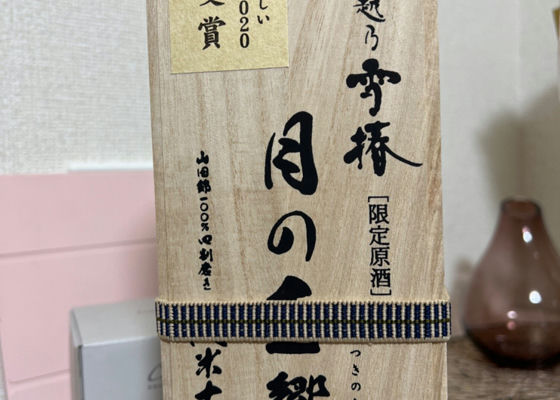 越乃雪椿
[限定原酒]
月の
つきの
山田錦一〇〇%四割磨き
米大
しい
020
賞